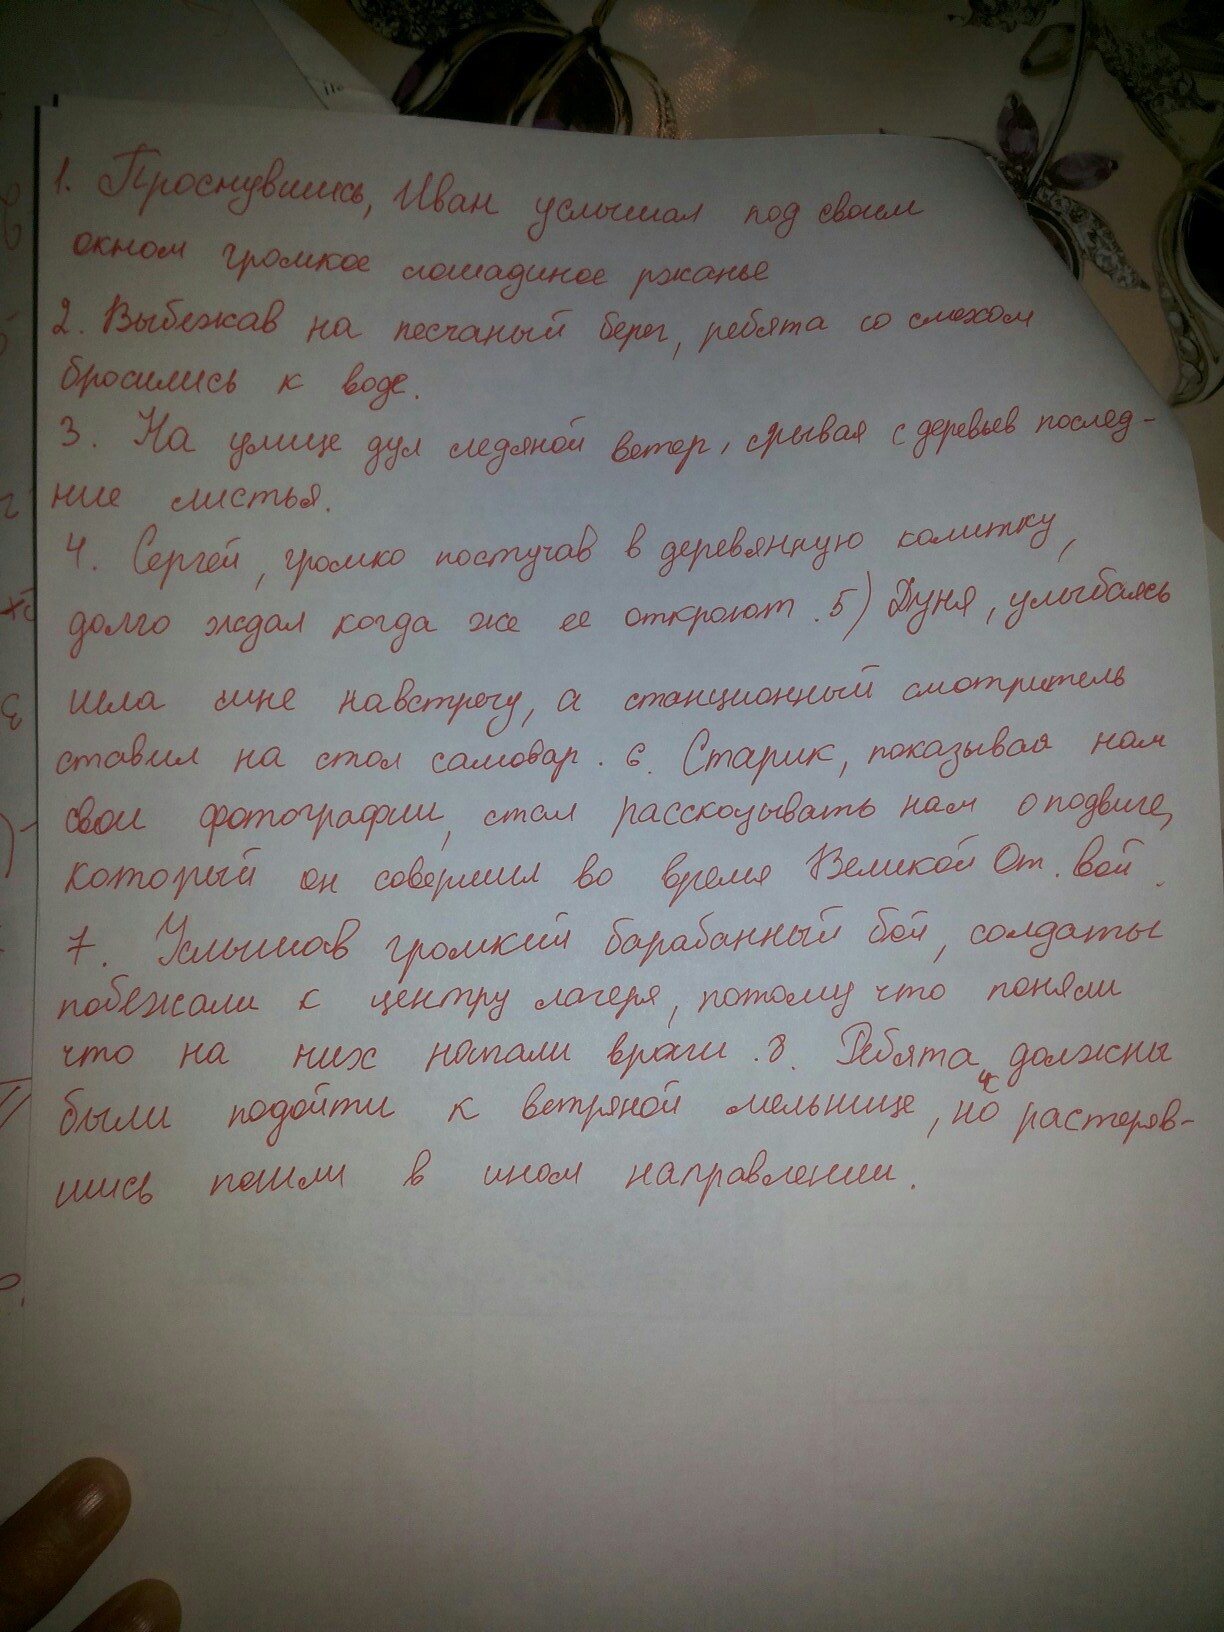 1. Проснувшись, Иван услышал под своим
окном громкое лошадиное ржанье
2. Выбежав на песчаный берег, ребята со смехом
бросились к воде.
3. На улице дул ледяной ветер, срывая с деревьев послед-
ние листья.
4. Сергей, громко постучав в деревянную калитку,
долго ждал когда же ее откроют. 5) Дуня, улыбаясь
шла мне навстречу, а станционный смотритель
ставил на стол самовар. 6. Старик, показывая нам
свои фотографии, стал рассказывать нам о подвиге,
который он совершил во время Великой От. вой.
7. Услышав громкий барабанный бой, солдаты
побежали к центру лагеря, потому что поняли
что на них напали враги. 8. Ребята должны
были подойти к ветряной мельнице, но растеряв-
шись пошли в ином направлении.